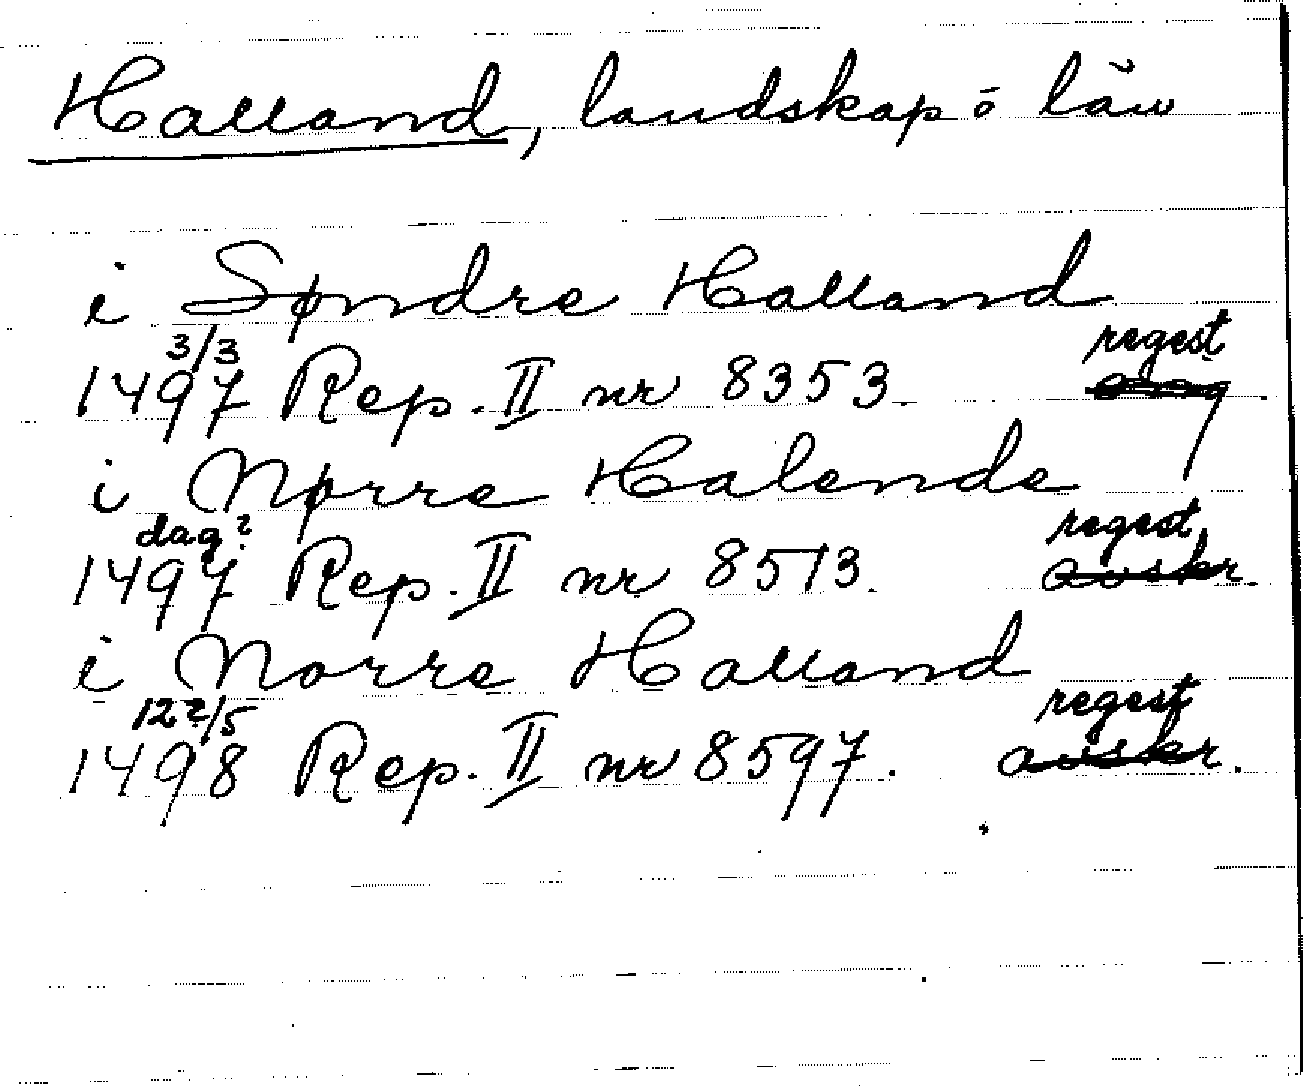 Halland, landskap ō län
i Søndre Halland
3/3 regest
1497 Rep. II nr 8353. orig
i Nørre Halende
dag? regest
1497 Rep. II nr 8513. avskr.
i Norre Halland
12?/5 regest
1498 Rep. II nr 8597. avskr.